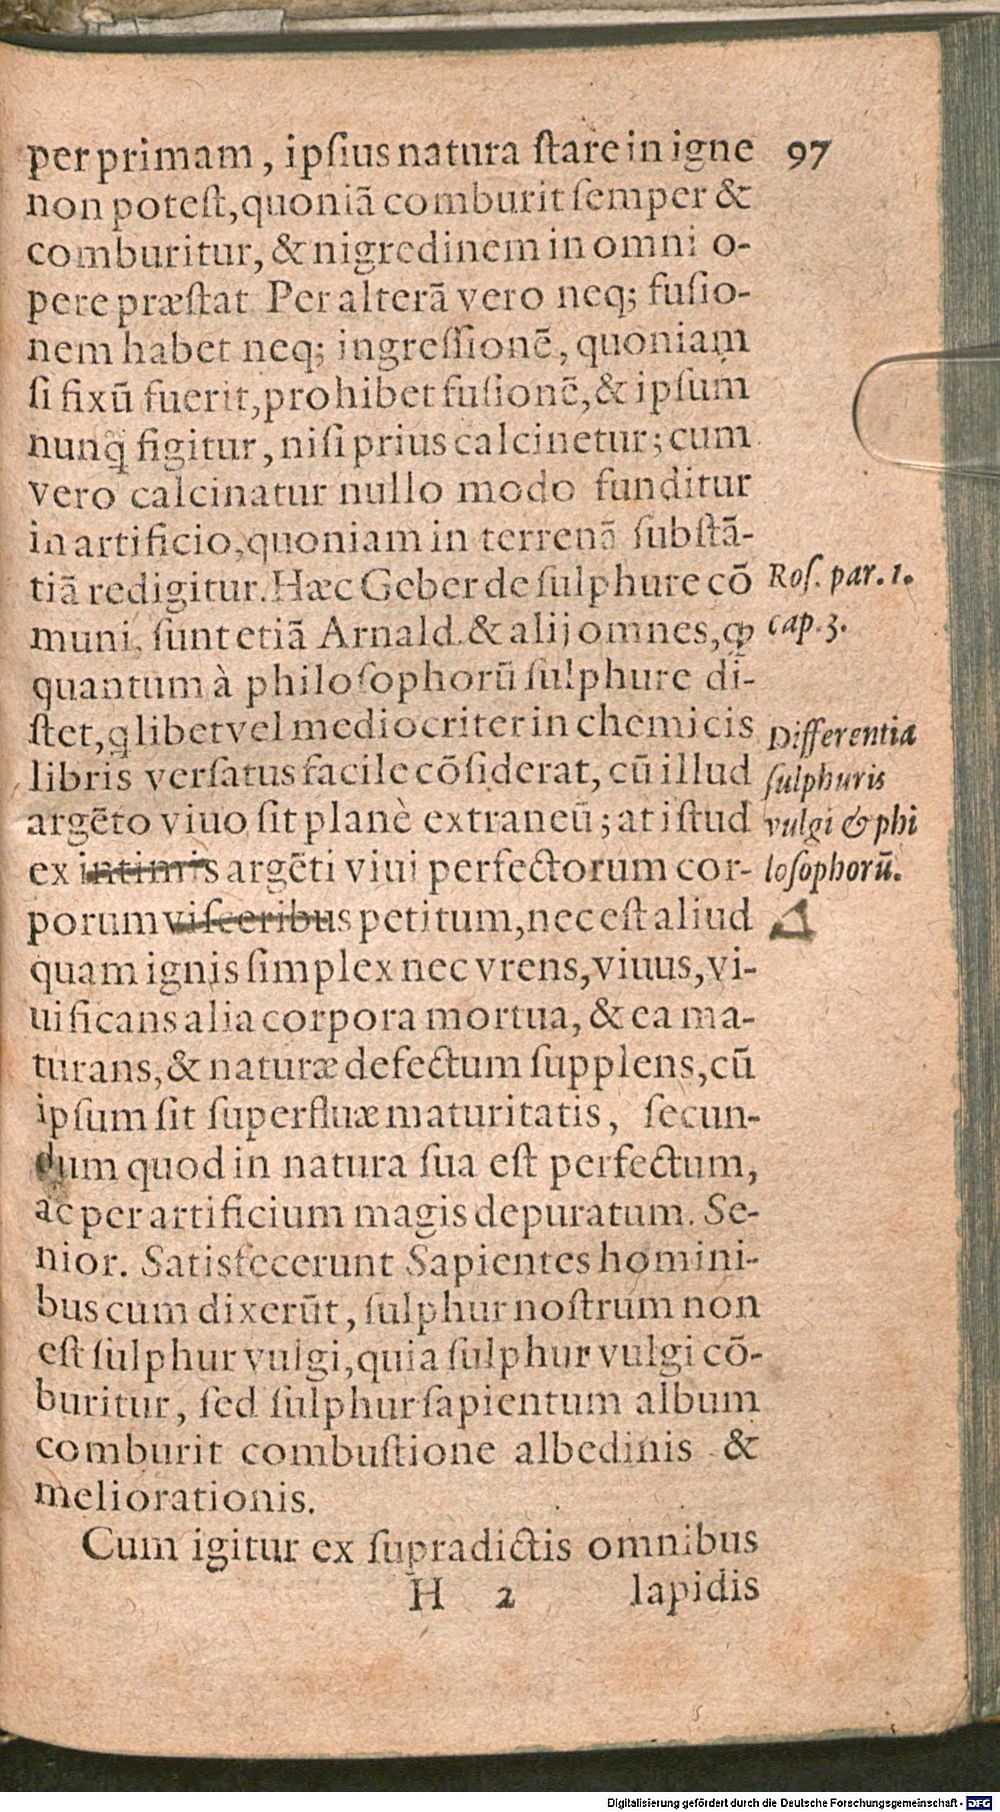 per primam, ipſius natura ſtare in igne 97
non poteſt, quoniã comburit ſemper &
comburitur, & nigredinem in omni o-
pere præſtat Per alterã vero neq; fuſio-
nem habet neq; ingreſſionẽ, quoniam
ſi fixũ fuerit, prohibet fuſionẽ, & ipſum
nunq̃ figitur, niſi prius calcinetur; cum
vero calcinatur nullo modo funditur
in artificio, quoniam in terrenã ſubſtã-
tiã redigitur. Hæc Geber de ſulphure cõ
Roſ. par. 1.
muni. ſunt etiã Arnald. & alij omnes, ꝙ
cap. 3.
quantum à philoſophorũ ſulphure di-
ſtet, q̃libet vel mediocriter in chemicis
Differentia
libris verſatus facile cõſiderat, cũ illud
ſulphuris
argẽto viuo ſit planè extraneũ; at iſtud
vulgi & phi
ex intimis argẽti viui perfectorum cor-
loſophorũ.
porum viſceribus petitum, nec eſt aliud
quam ignis ſimplex nec vrens, viuus, vi-
uificans alia corpora mortua, & ea ma-
turans, & naturæ defectum ſupplens, cũ
ipſum ſit ſuperfluæ maturitatis, ſecun-
dum quod in natura ſua eſt perfectum,
ac per artificium magis depuratum. Se-
nior. Satisfecerunt Sapientes homini-
bus cum dixerũt, ſulphur noſtrum non
eſt ſulphur vulgi, quia ſulphur vulgi cõ-
buritur, ſed ſulphur ſapientum album
comburit combuſtione albedinis &
meliorationis.
Cum igitur ex ſupradictis omnibus
H 2 lapidis
Digitalisierung gefördert durch die Deutsche Forschungsgemeinschaft - DFG